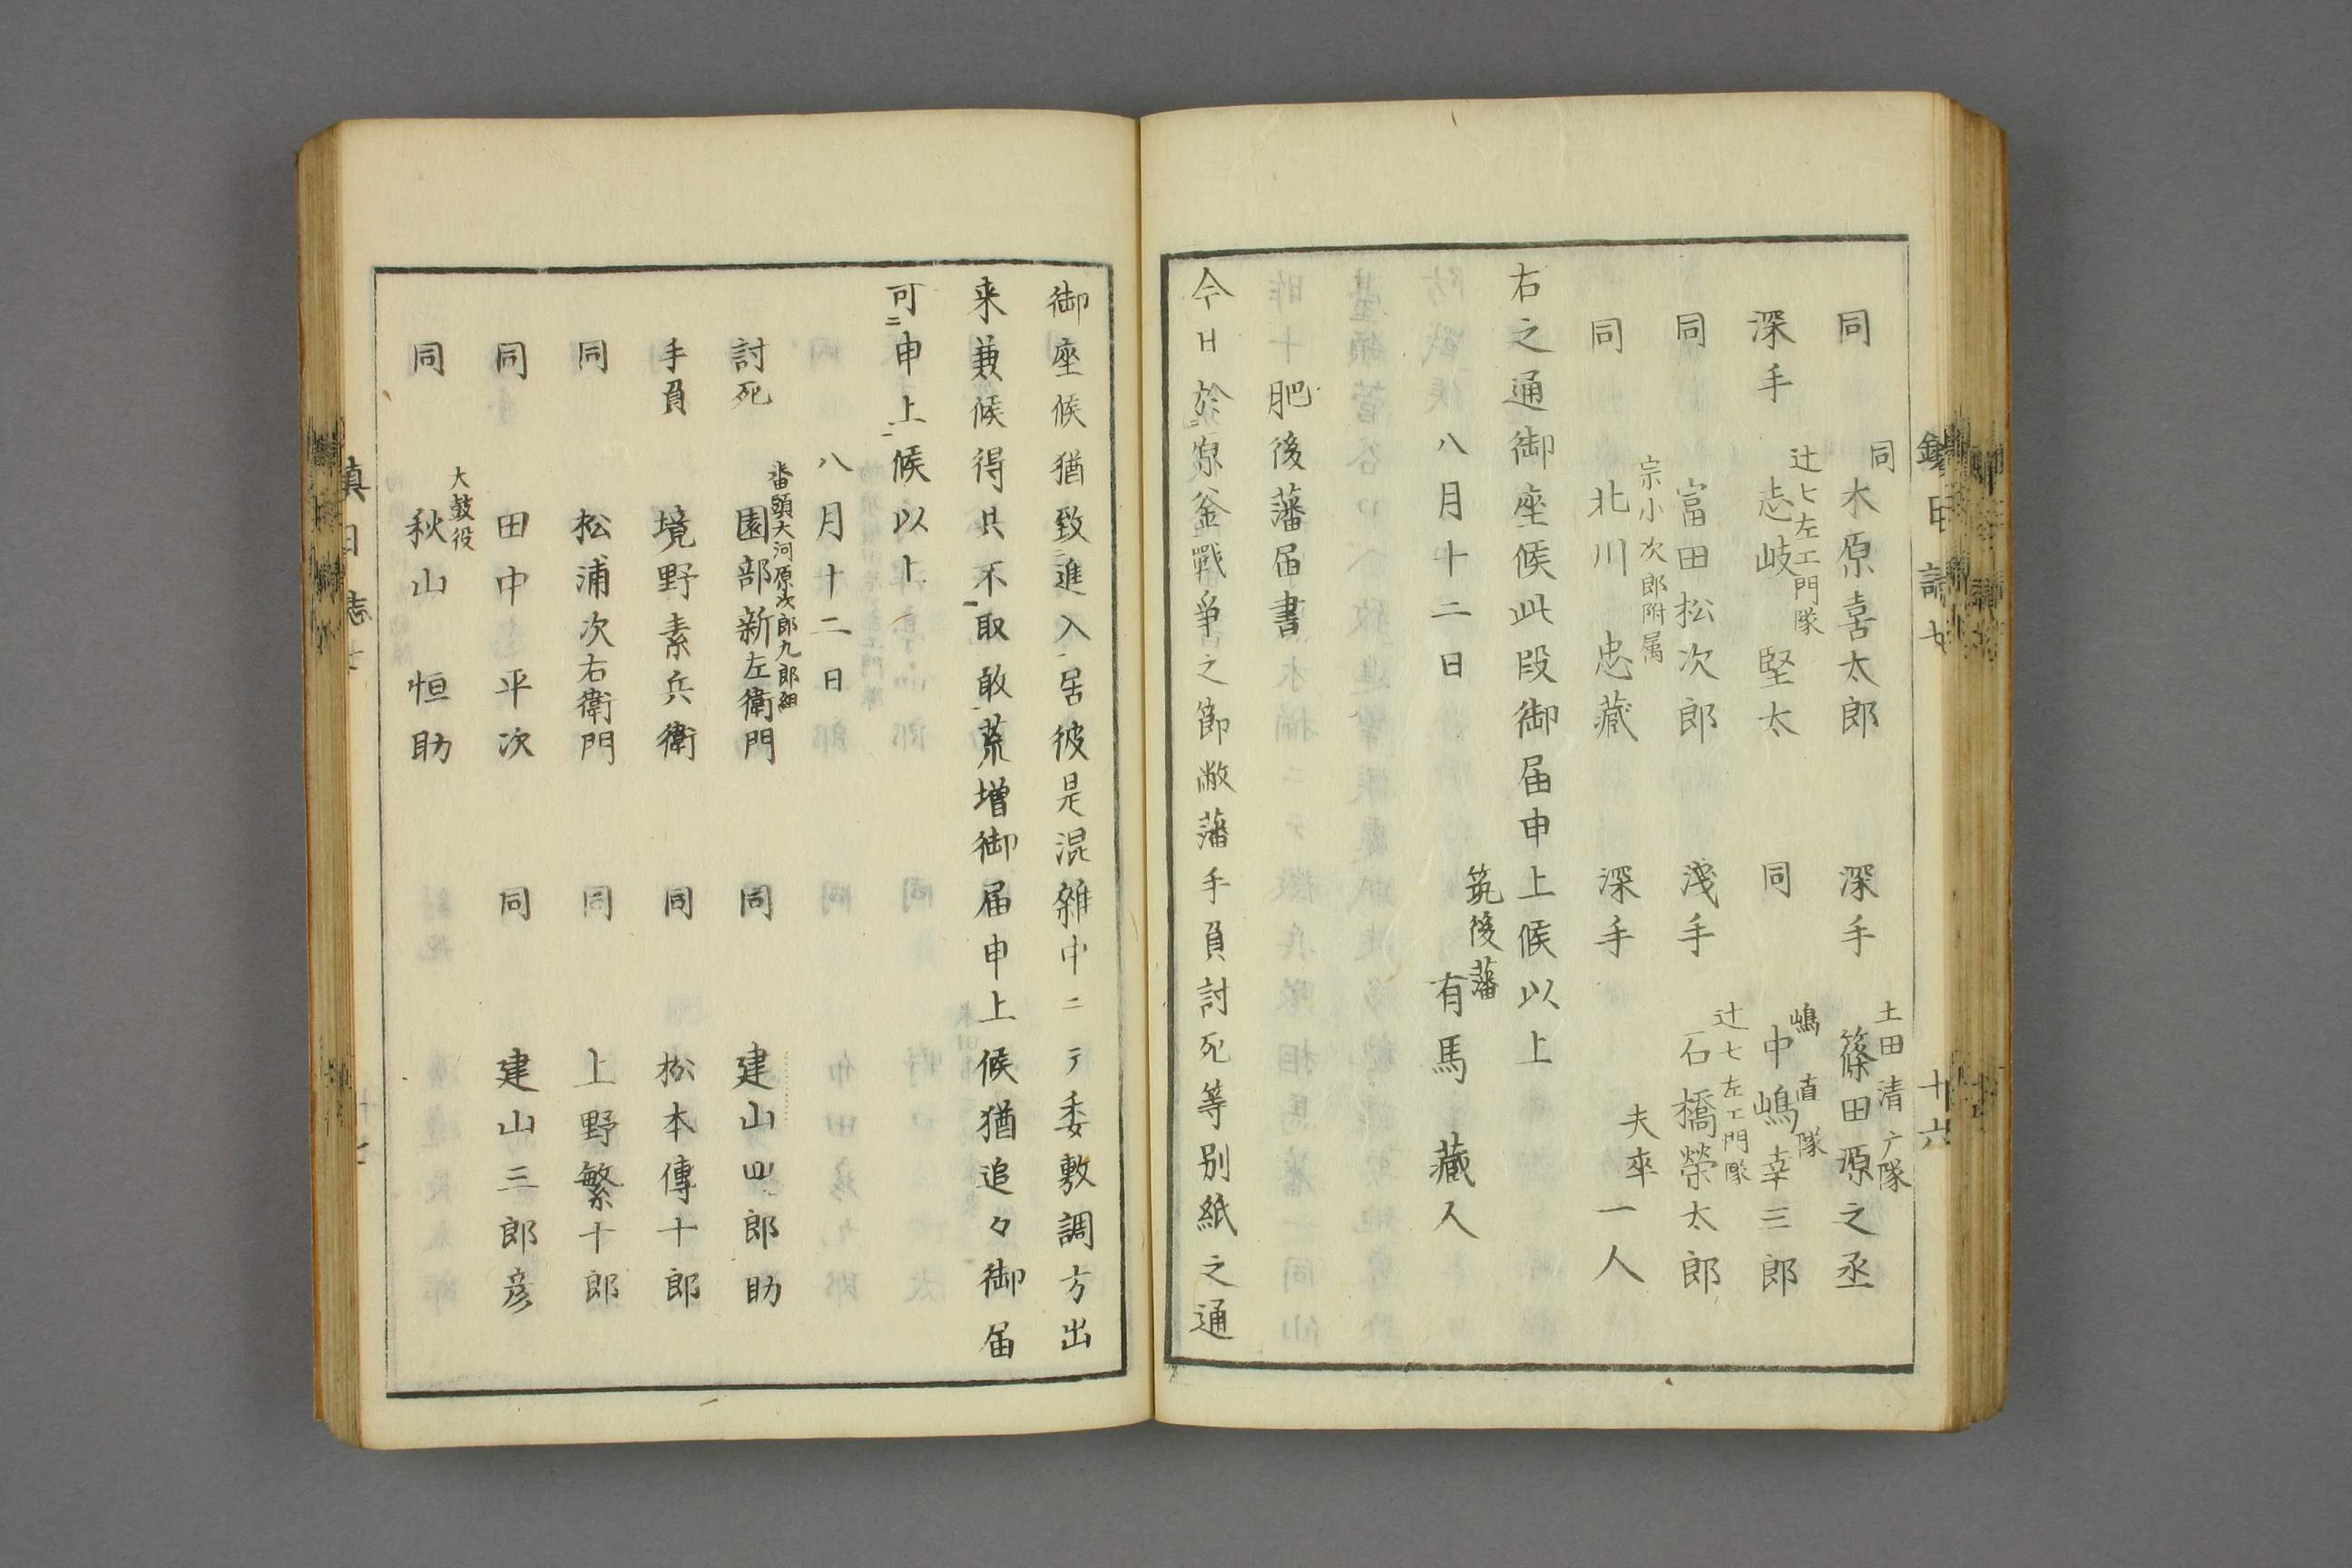 同 同 木原喜太郎 深手 土田清广隊 篠田原之丞
深手 辻七左エ門隊 志岐堅太 同 嶋直隊 中嶋幸三郎
同 富田松次郎 淺手 辻七左エ門隊 石橋榮太郎
同 宗小次郎附属 北川忠藏 深手 夫卒一人
右之通御座候此段御届申上候以上
八月十二日 筑後藩 有馬藏人
肥後藩届書
今日於原釜戰爭之節敝藩手負討死等別紙之通
十六
御座候猶致進入居彼是混雜中ニテ委敷調方出
来兼候得共不取敢荒増御届申上候猶追々御届
可申上候以上
八月十二日
討死 畨頭大河原次郎九郎組 園部新左衛門 同 建山四郎助
手負 境野素兵衛 同 松本傳十郎
同 松浦次右衛門 同 上野繁十郎
同 田中平次 同 建山三郎彦
同 大鼓役 秋山恒助